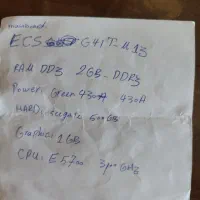 ECS G41T-M13
RAM DD3 2GB-DDR3
Power: Green 430A 430A
HARD: 500GB
Graphic: 1GB
CPU: E5700 3,00 GHz